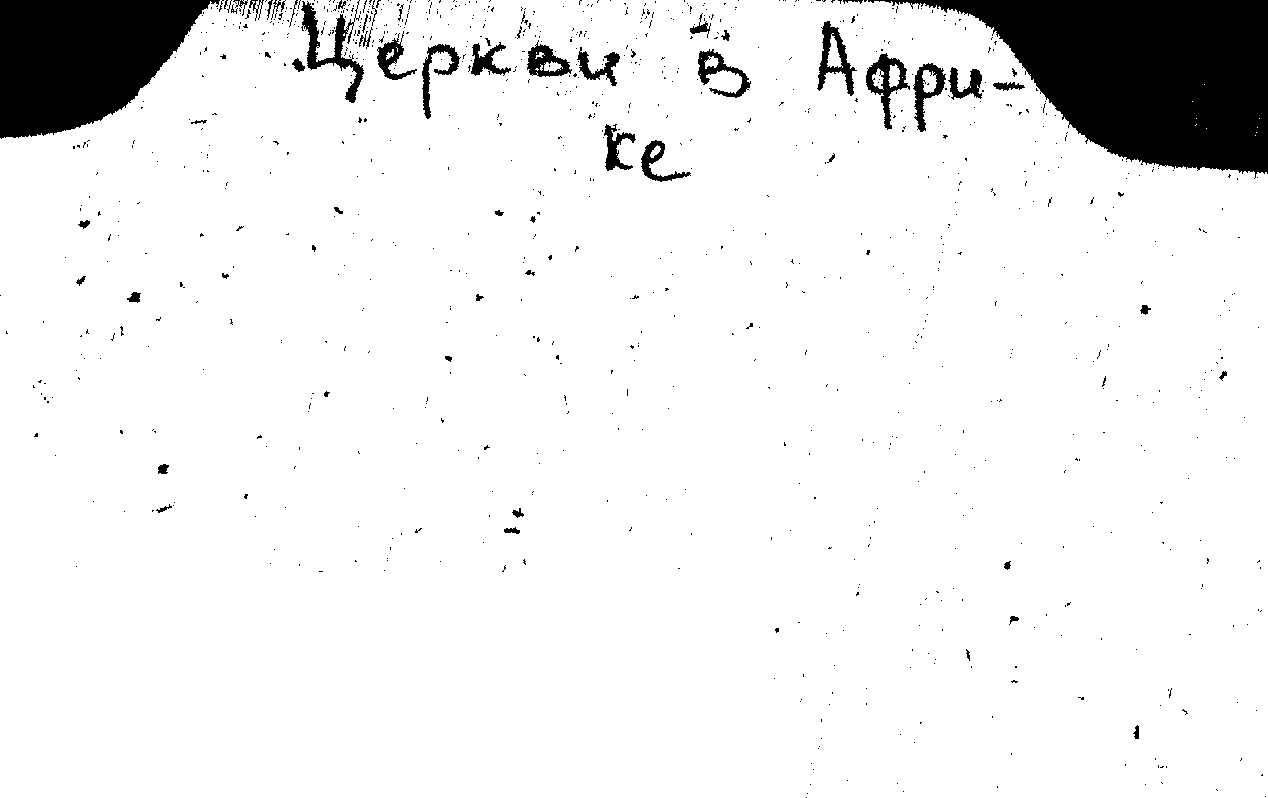 Церкви в Афри-
ке